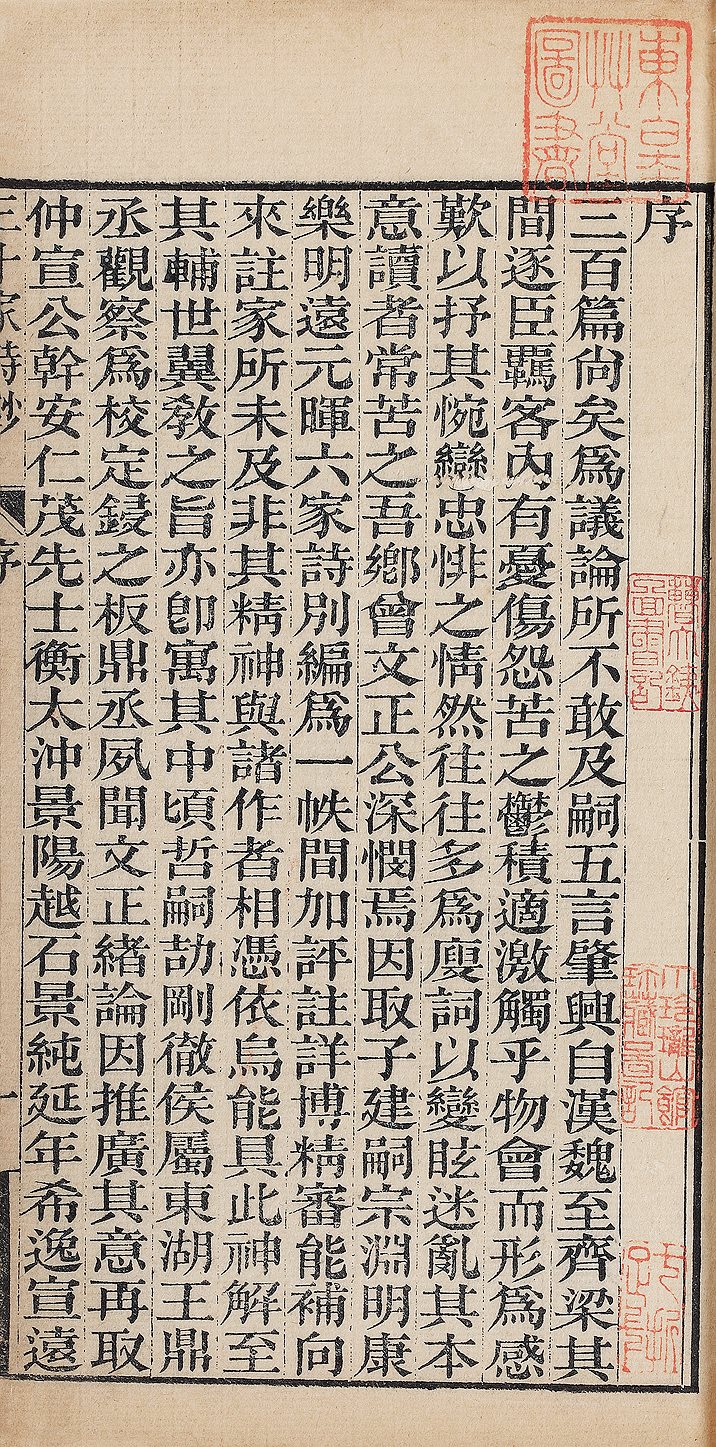 序
三百篇尙矣爲議論所不敢及嗣五言肇興自漢魏至齊梁其
間逐臣羈客內有憂傷怨苦之鬱積適激觸乎物會而形爲感
歎以抒其惋孌忠悱之情然往往多爲廋詞以變眩迷亂其本
意讀者常苦之吾鄕曾文正公深憫焉因取子建嗣宗淵明康
樂明遠元暉六家詩別編爲一帙間加評註詳博精審能補向
來註家所未及非其精神與諸作者相憑依烏能具此神解至
其輔世翼敎之旨亦卽寓其中頃哲嗣劼剛徹侯屬東湖王鼎
丞觀察爲校定鋟之板鼎丞夙聞文正緒論因推廣其意再取
仲宣公幹安仁茂先士衡太沖景陽越石景純延年希逸宣遠
家詩鈔
序
一
東
艸堂
圖書